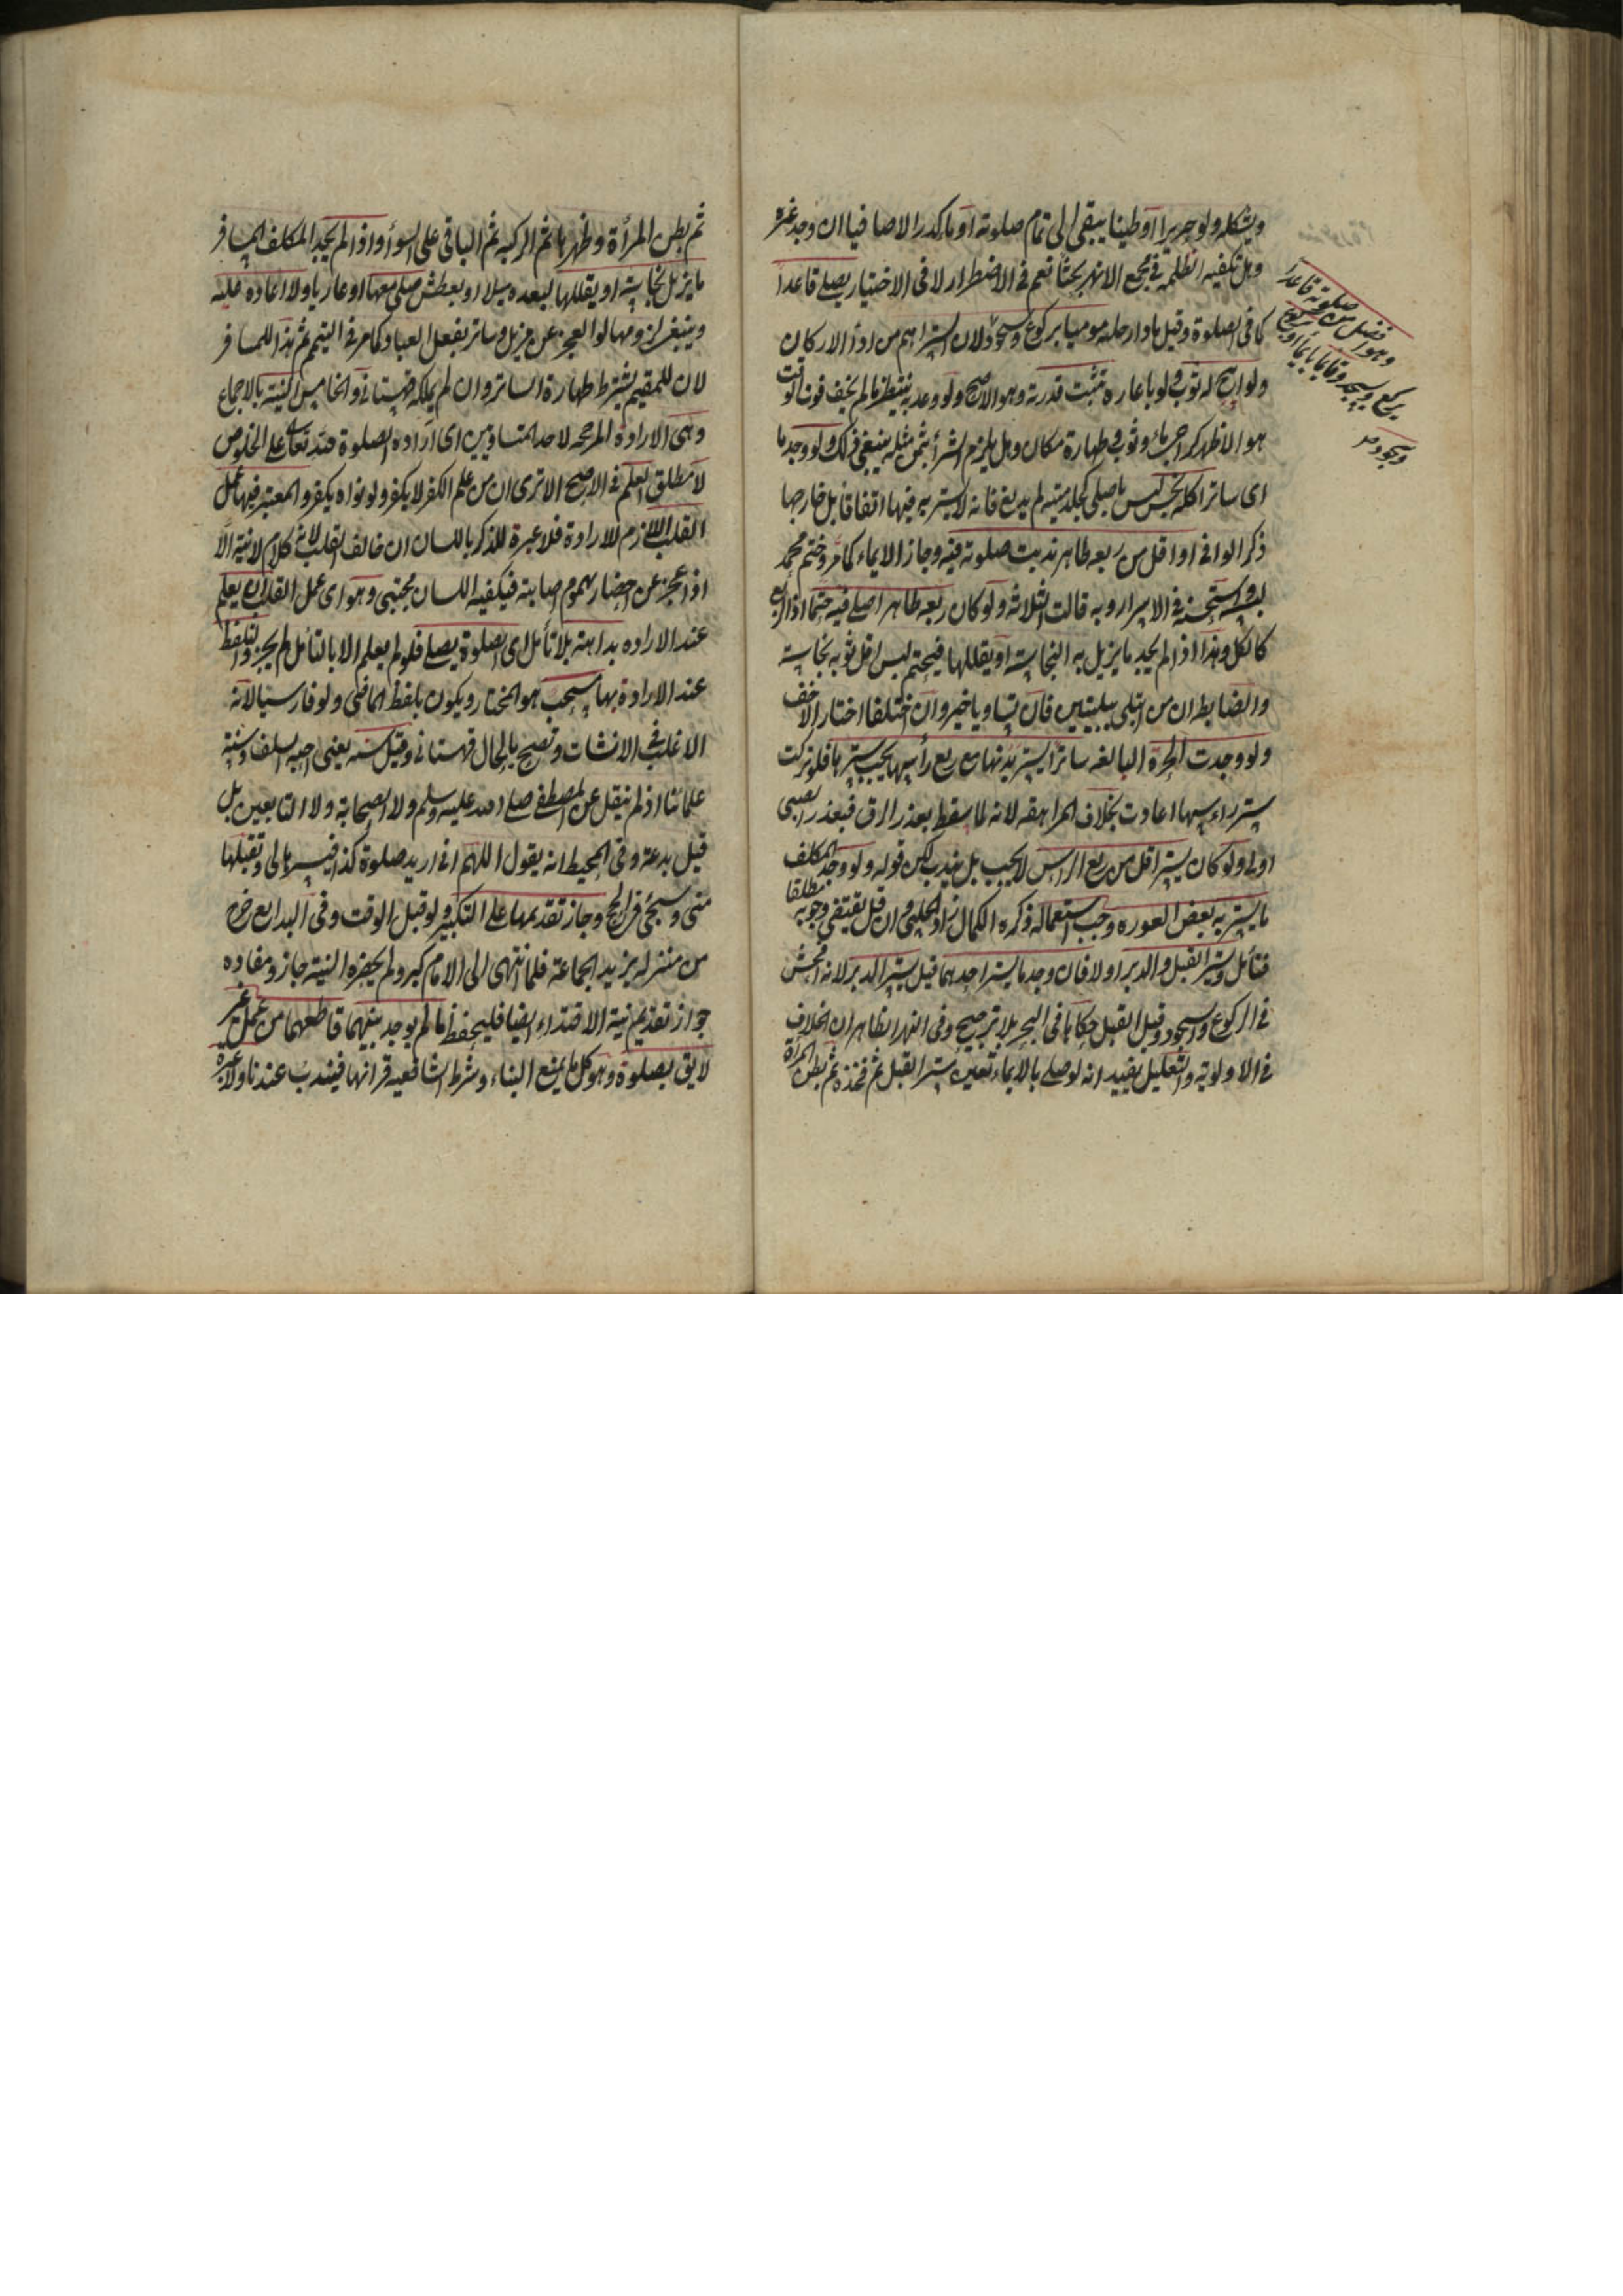 ويشكله ولو حريرا او طينا يبقى الى تمام صلوته او ماء كدرا لا صافيا ان وجد غيره
وهل تكفيه الظلمة في مجمع الانهر بحثا نعم في الاضطرار لا في الاختيار يصلي قاعدا
كما في الصلوة وقيل مادا رجليه موميا بركوع وسجود لان الستر اهم من اداء الاركان
ولو ابيح له ثوب ولو باعارة تثبت قدرته هو الاصح ولو وعد به ينتظر ما لم يخف فوت الوقت
هو الاظهر كراجي ماء وثوب وطهارة مكان وهل يلزم الشراء بثمن مثله ينبغي ذلك ولو وجد ما
اى ساترا كله نجس ليس باصلي كجلد ميتة لم يدبغ فانه لا يستر به فيها اتفاقا بل خارجها
ذكره الواني او اقل من ربعه طاهر ندبت صلوته فيه وجاز الايماء كما مر وحتم محمد
لبسه واستحسنه في الاسرار وبه قالت الثلاثة ولو كان ربعه طاهرا صلى فيه حتما اذ الربع
كالكل وهذا اذا لم يجد ما يزيل به النجاسة او يقللها فيحتم لبس اقل ثوبيه نجاسة
والضابط ان من ابتلي ببليتين فان تساويا خير وان اختلفا اختار الاخف
ولو وجدت الحرة البالغة ساترا يستر بدنها مع ربع رأسها يجب سترها فلو تركت
ستر راءسها اعادت بخلاف المراهقة لانه لما سقط بعذر الرق فبعذر الصبى
اولى ولو كان يستر اقل من ربع الراس لا يجب بل يندب لكن قوله ولو وجد المكلف
ما يستر به بعض العورة وجب استعماله ذكره الكمال زاد الحلبي وان قل يقتضى وجوبه مطلقا
فتأمل ويستر القبل والدبر اولا فان وجد ما يستر احدهما قيل يستر الدبر لانه افحش
في الركوع والسجود وقيل القبل حكاهما في البحر بلا ترجيح وفي النهر الظاهر ان الخلاف
في الاولوية والتعليل يفيد انه لو صلى بالايماء تعين ستر القبل ثم فخذه ثم بطن المرأة
وهو افضل من صلوته قاعدا
يركع ويسجد وقائما بايماء او بركوع
وسجود صر
ثم بطن المرأة وظهرها ثم الركبة ثم الباقي على السوأ واذا لم يجد المكلف المسافر
ما يزيل نجاسته او يقللها لبعده ميلا او بعطش صلى معها او عاريا ولا اعادة عليه
وينبغى لزومها لو العجز عن مزيل وساتر بفعل العباد كما مر في التيمم ثم هذا للمسافر
لان للمقيم يشترط طهارة الساتر وان لم يملكه قهستاني والخامس النية بالاجماع
وهى الارادة المرجحة لاحد المتساويين اى ارادة الصلوة لله تعالى على الخلوص
لا مطلق العلم في الاصح الا ترى ان من علم الكفر لا يكفر ولو نواه يكفر والمعتبر فيها عمل
القلب اللازم للارادة فلا عبرة للذكر باللسان ان خالف القلب لانه كلام لا نية الا
اذا عجز عن احضاره لهموم اصابته فيكفيه اللسان مجتبى وهو اى عمل القلب ان يعلم
عند الارادة بداهة بلا تأمل اى الصلوة يصلي فلو لم يعلم الا بالتأمل لم يجز والتلفظ
عند الارادة بها مستحب هو المختار ويكون بلفظ الماضى ولو فارسيا لانه
الاغلب في الانشات وتصح بالحال قهستاني وقيل سنة يعنى احبه السلف او سنة
علمائنا اذ لم ينقل عن المصطفى صلى الله عليه وسلم ولا الصحابة ولا التابعين بل
قيل بدعة وفي المحيط انه يقول اللهم انى اريد صلوة كذا فيسرها لى وتقبلها
منى وسيجئ في الحج وجاز تقديمها على التكبير ولو قبل الوقت وفي البدايع خرج
من منزله يريد الجماعة فلما انتهى الى الامام كبر ولم يحضره النية جاز ومفاده
جواز تقديم نية الاقتداء ايضا فليحفظ ما لم يوجد بينهما قاطعهما من عمل غير
لايق بصلوة وهو كل ما يمنع البناء وشرط الشافعية قرانها فيندب عندنا ولا عبرة